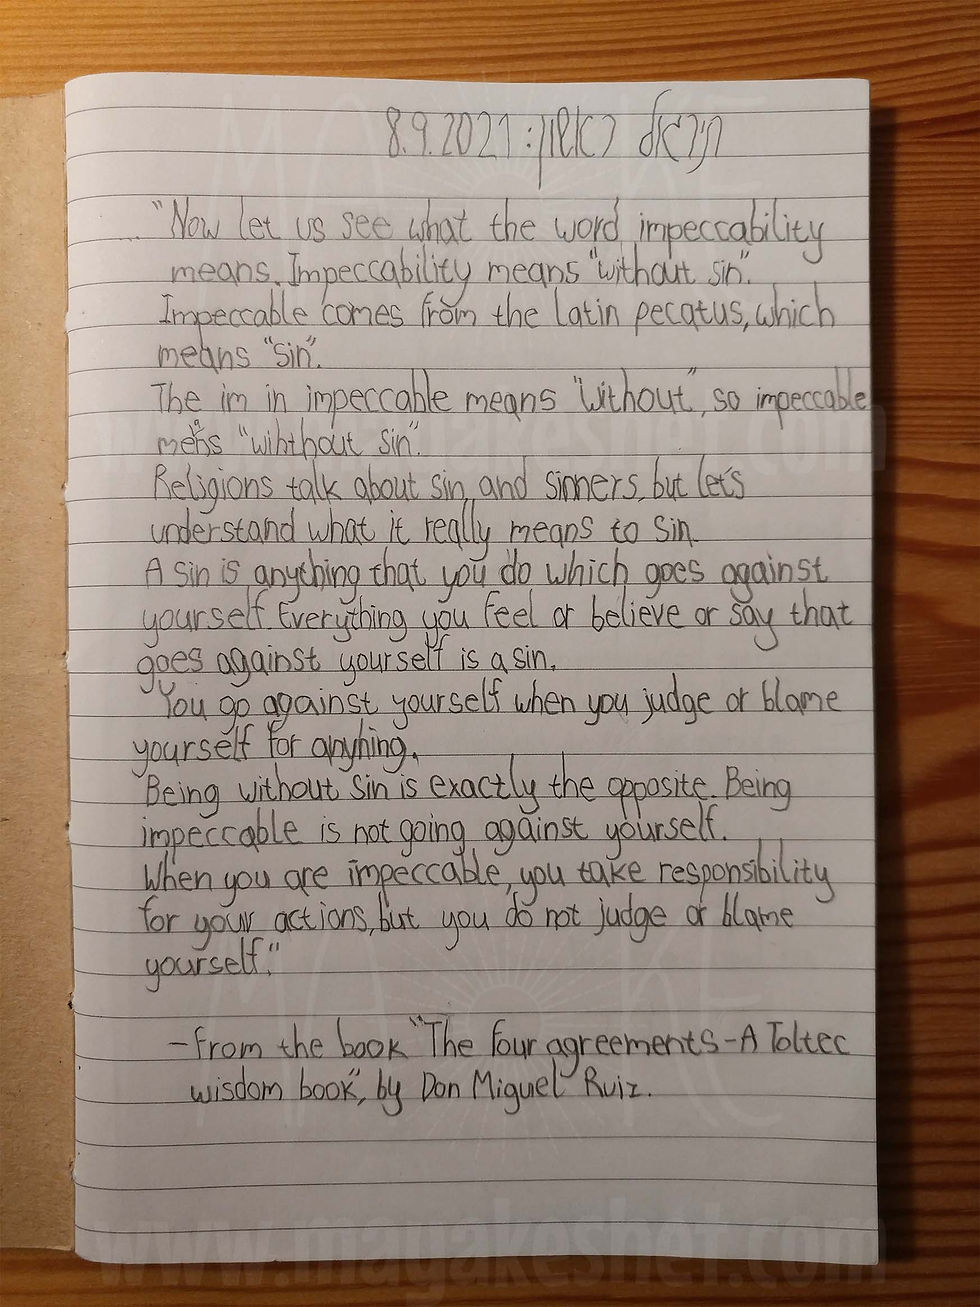 ראשון: 8.9.2021
"Now let us see what the word impeccability
means. Impeccability means "without sin".
Impeccable comes from the latin pecatus, which
means "sin".
The im in impeccable means "without", so impeccable
means "wihthout sin".
Religions talk about sin and sinners, but let's
understand what it really means to sin.
A sin is anything that you do which goes against
yourself. Everything you feel or believe or say that
goes against yourself is a sin.
You go against yourself when you judge or blame
yourself for anyhing.
Being without sin is exactly the opposite. Being
impeccable is not going against yourself.
When you are impeccable, you take responsibility
for your actions, but you do not judge or blame
yourself."
-from the book "The four agreements-A Toltec
wisdom book", by Don Miguel Ruiz.
www.magakeshet.com
www.magakeshet.com